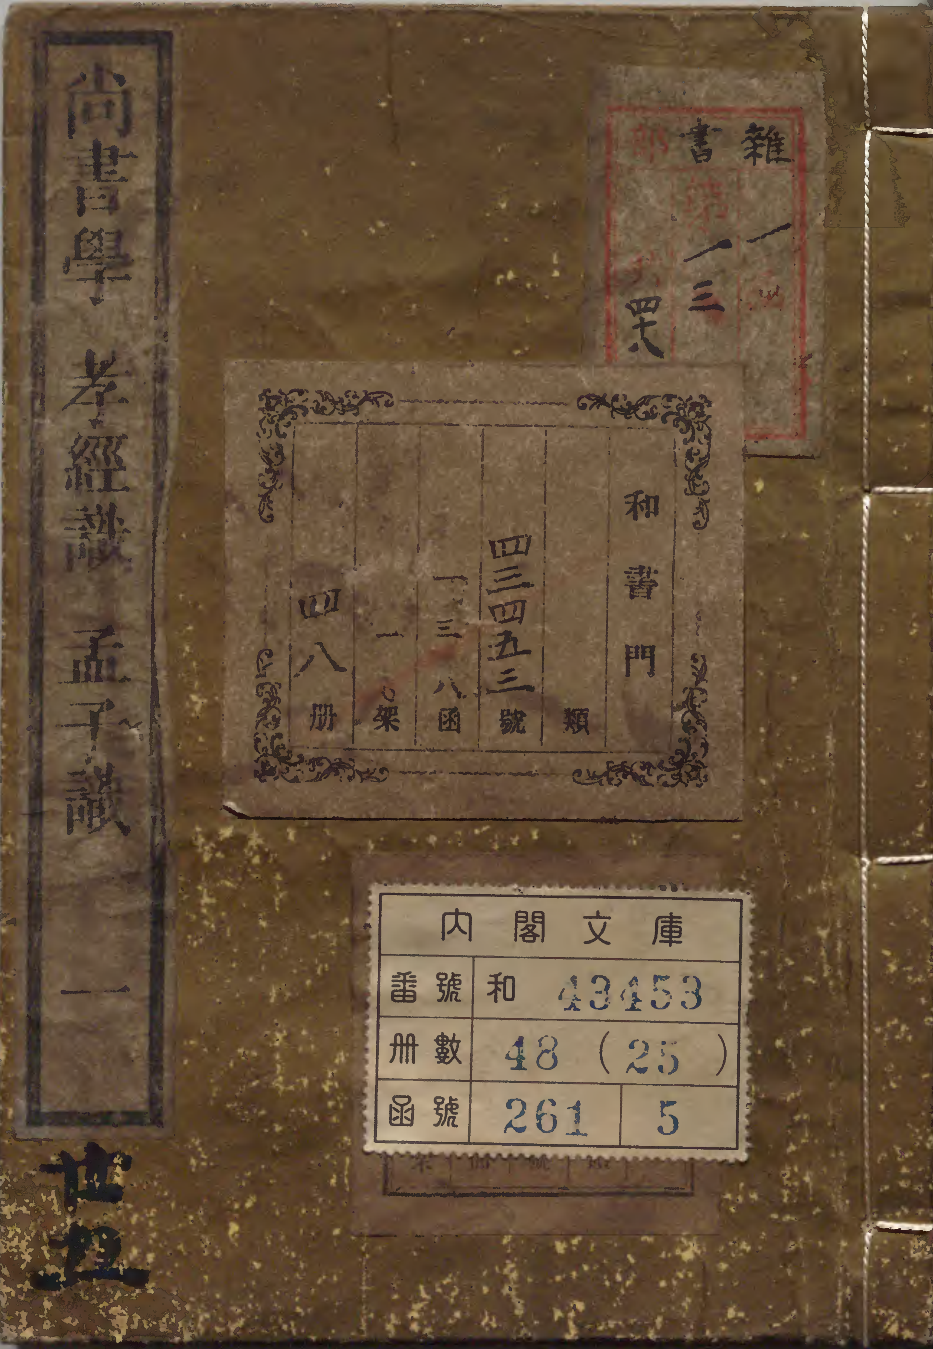 尚書學 孝經識 孟子識 一
雜書
一
一三
四十八
和書門
類
四三四五三號
一三八函
一〇架
四八册
內閣文庫
番號 和 43453
册數 48 (25)
函號 261 5